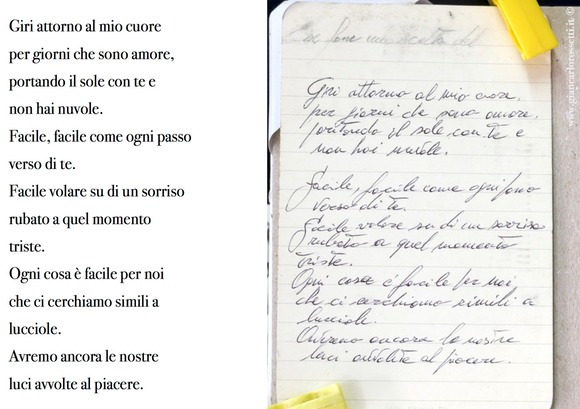 Giri attorno al mio cuore
per giorni che sono amore,
portando il sole con te e
non hai nuvole.
Facile, facile come ogni passo
verso di te.
Facile volare su di un sorriso
rubato a quel momento
triste.
Ogni cosa è facile per noi
che ci cerchiamo simili a
lucciole.
Avremo ancora le nostre
luci avvolte al piacere.
Giri attorno al mio cuore,
per giorni che sono amore,
portando il sole con te e
non hai nuvole.
Facile, facile come ogni passo
verso di te.
Facile volare su di un sorriso
rubato a quel momento
triste.
Ogni cosa è facile per noi,
che ci cerchiamo simili a
lucciole.
Avremo ancora le nostre
luci avvolte al piacere.
www.giancarlorossetti.it ©